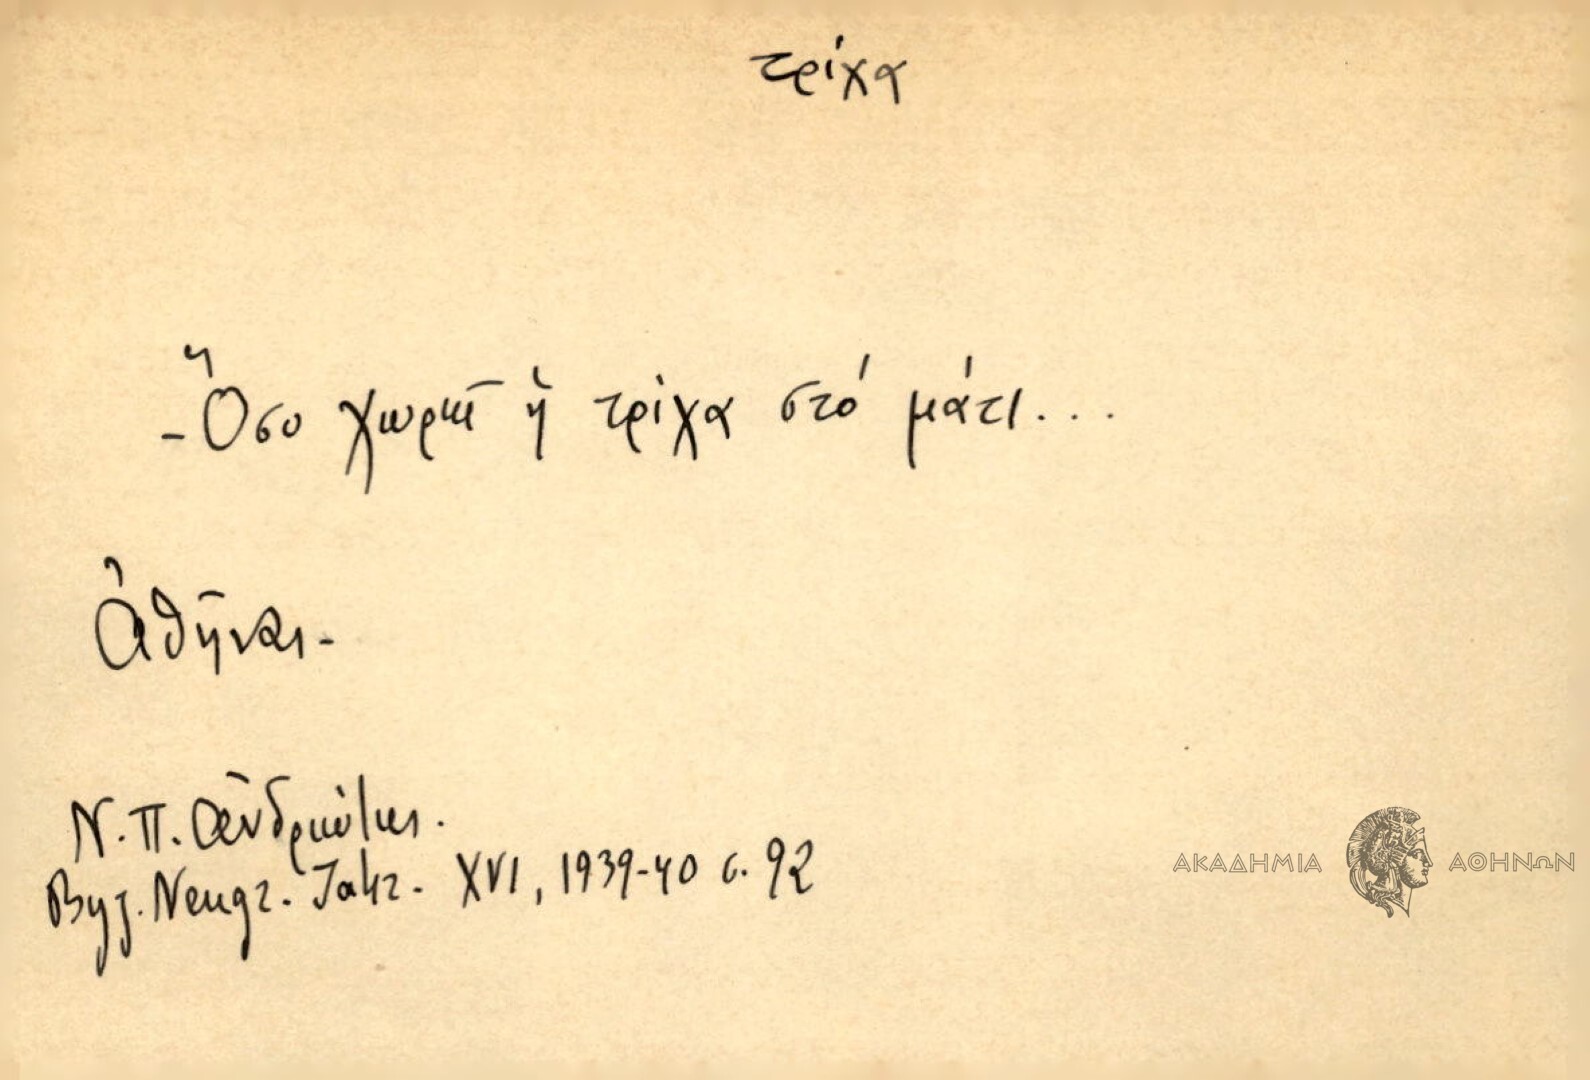 τρίχα
- Ὅσο χωρεῖ ἡ τρίχα στό μάτι...
Ἀθῆναι.-
Ν. Π. Ἀνδριώτης.
Byz. Neugr. Jahr. XVI, 1939-40 σ. 92
ΑΚΑΔΗΜΙΑ ΑΘΗΝΩΝ